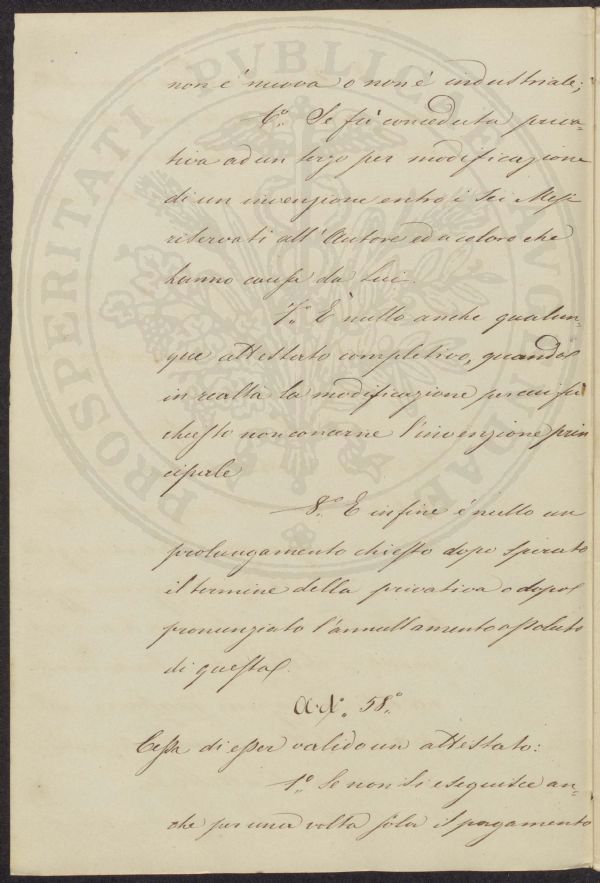 non è nuova o non è industriale;
6.° Se fu conceduta priva=
tiva ad un terzo per modificazione
di un invenzione entro i Sei Mesi
riservati all'Autore ed a coloro che
hanno causa da Lui.
7.° È nullo anche qualun=
que attestato completivo, quando
in realtà la modificazione per cui fu
chiesto non concerne l'invenzione prin
cipale
8.° E infine è nullo un
prolungamento chiesto dopo spirato
il termine della privativa o dopo
pronunziato l'annullamento assoluto
di questa.
Art. 58.°
Cessa di esser valido un attestato:
1.° Se non si eseguisce an=
che per una volta sola il pagamento
PROSPERITATI PVBLICAE AVGENDAE